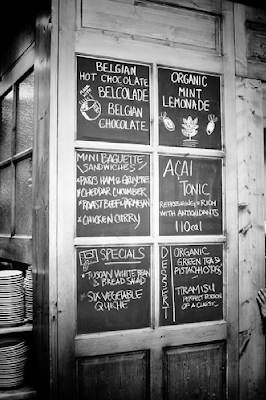 BELGIAN
HOT CHOCOLATE
BELCOLADE
BELGIAN
CHOCOLATE
ORGANIC
MINT
LEMONADE
MINI BAGUETTE
SANDWICHES
PARIS HAM & GRUYERE
CHEDDAR CUCUMBER
ROAST BEEF PARMESAN
CHICKEN CURRY
AÇAI
TONIC
REFRESHING & RICH
WITH ANTIOXIDANTS
110cal
SPECIALS
TUSCAN WHITE BEAN
& BREAD SOUP
SIX VEGETABLE
QUICHE
DESSERT
ORGANIC
GREEN TEA &
PISTACHIO
TIRAMISU
PERFECT PORTION
OF A CLASSIC